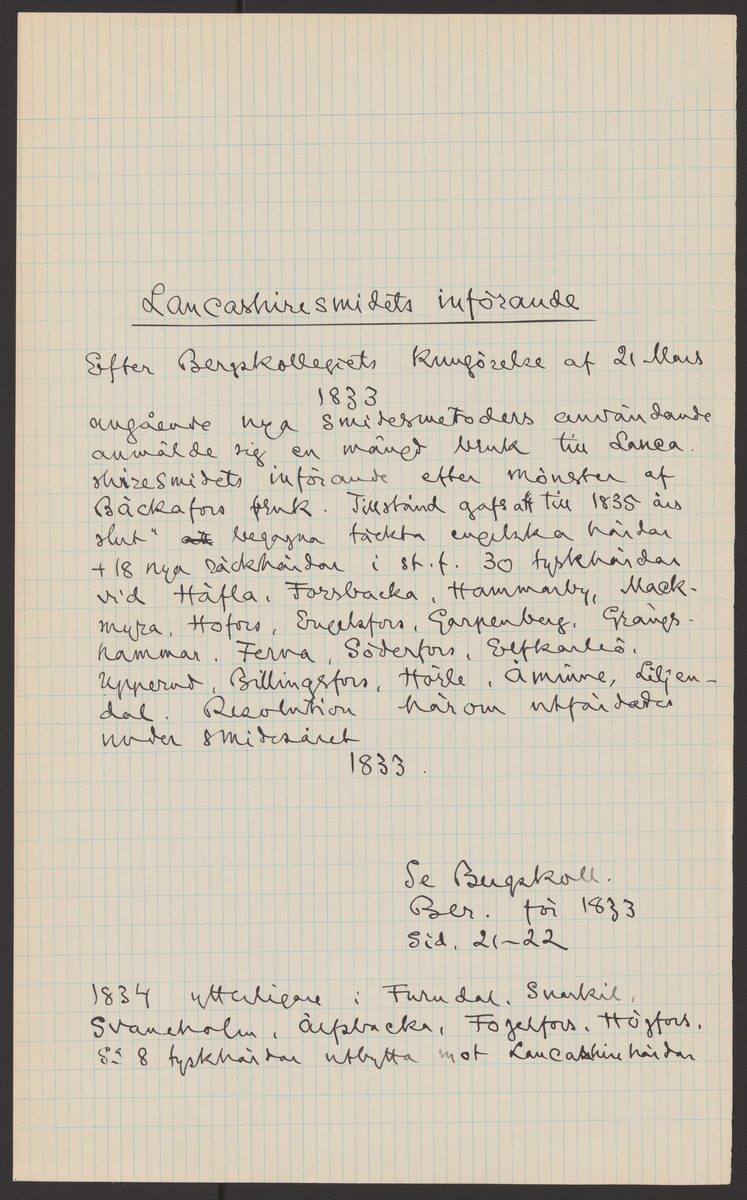 Lancashiresmidets införande
Efter Bergskollegiets kungörelse af 21 Mars
1833
angående nya smidesmetoders användande
anmälde sig en mängd bruk till Lanca-
shiresmidets införande efter mönster af
Bäckafors bruk. Tillstånd gafs att till 1835 års
slut" begagna täckta engelska härdar
+ 18 nya räckhärdar i st. f. 30 tyskhärdar
vid Häfla, Forsbacka, Hammarby, Mack-
myra, Hofors, Engelsfors, Garpenberg, Grängs-
hammar, Ferna, Söderfors, Elfkarleö,
Upperud, Billingsfors, Hörle, Åminne, Liljen-
dal. Resolution härom utfärdades
under smidesåret
1833.
Se Bergskoll.
Ber. för 1833
Sid. 21-22
1834 ytterligare i Furudal, Snarkil,
Svaneholm, Älfsbacka, Fogelfors, Högfors,
Sa 8 tyskhärdar utbytta mot Lancashirehärdar